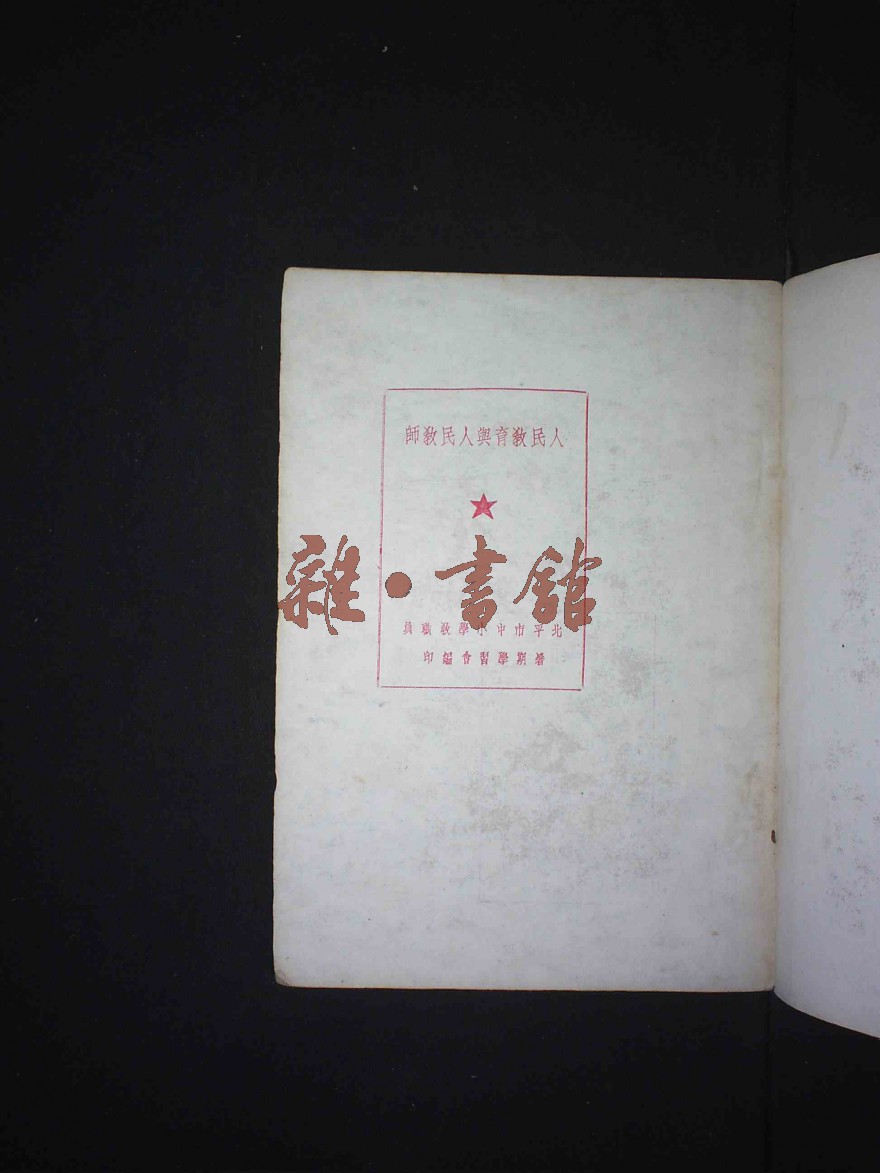 人民教育與人民教師
雜·書館
北平市中小學教職員
暑期學習會編印